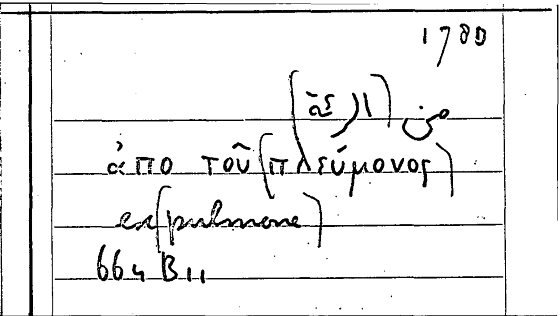 1780
من (الرئة)
ἀπο τοῦ (πλεύμονος)
ex (pulmone)
664 B 11